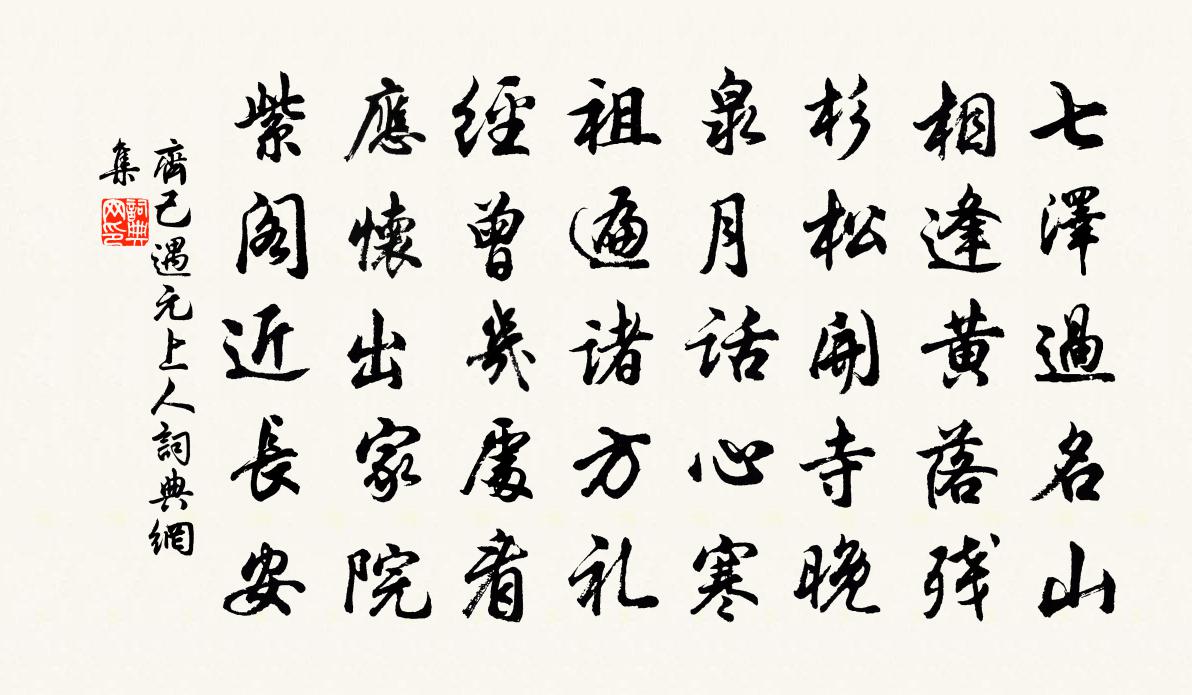 七澤過名山
相逢黃落殘
杉松開寺晚
泉月話心寒
祖遍諸方礼
經曾幾處看
應懷出家院
紫閣近長安
齊己遇元上人詞典網
集
詞典
网印